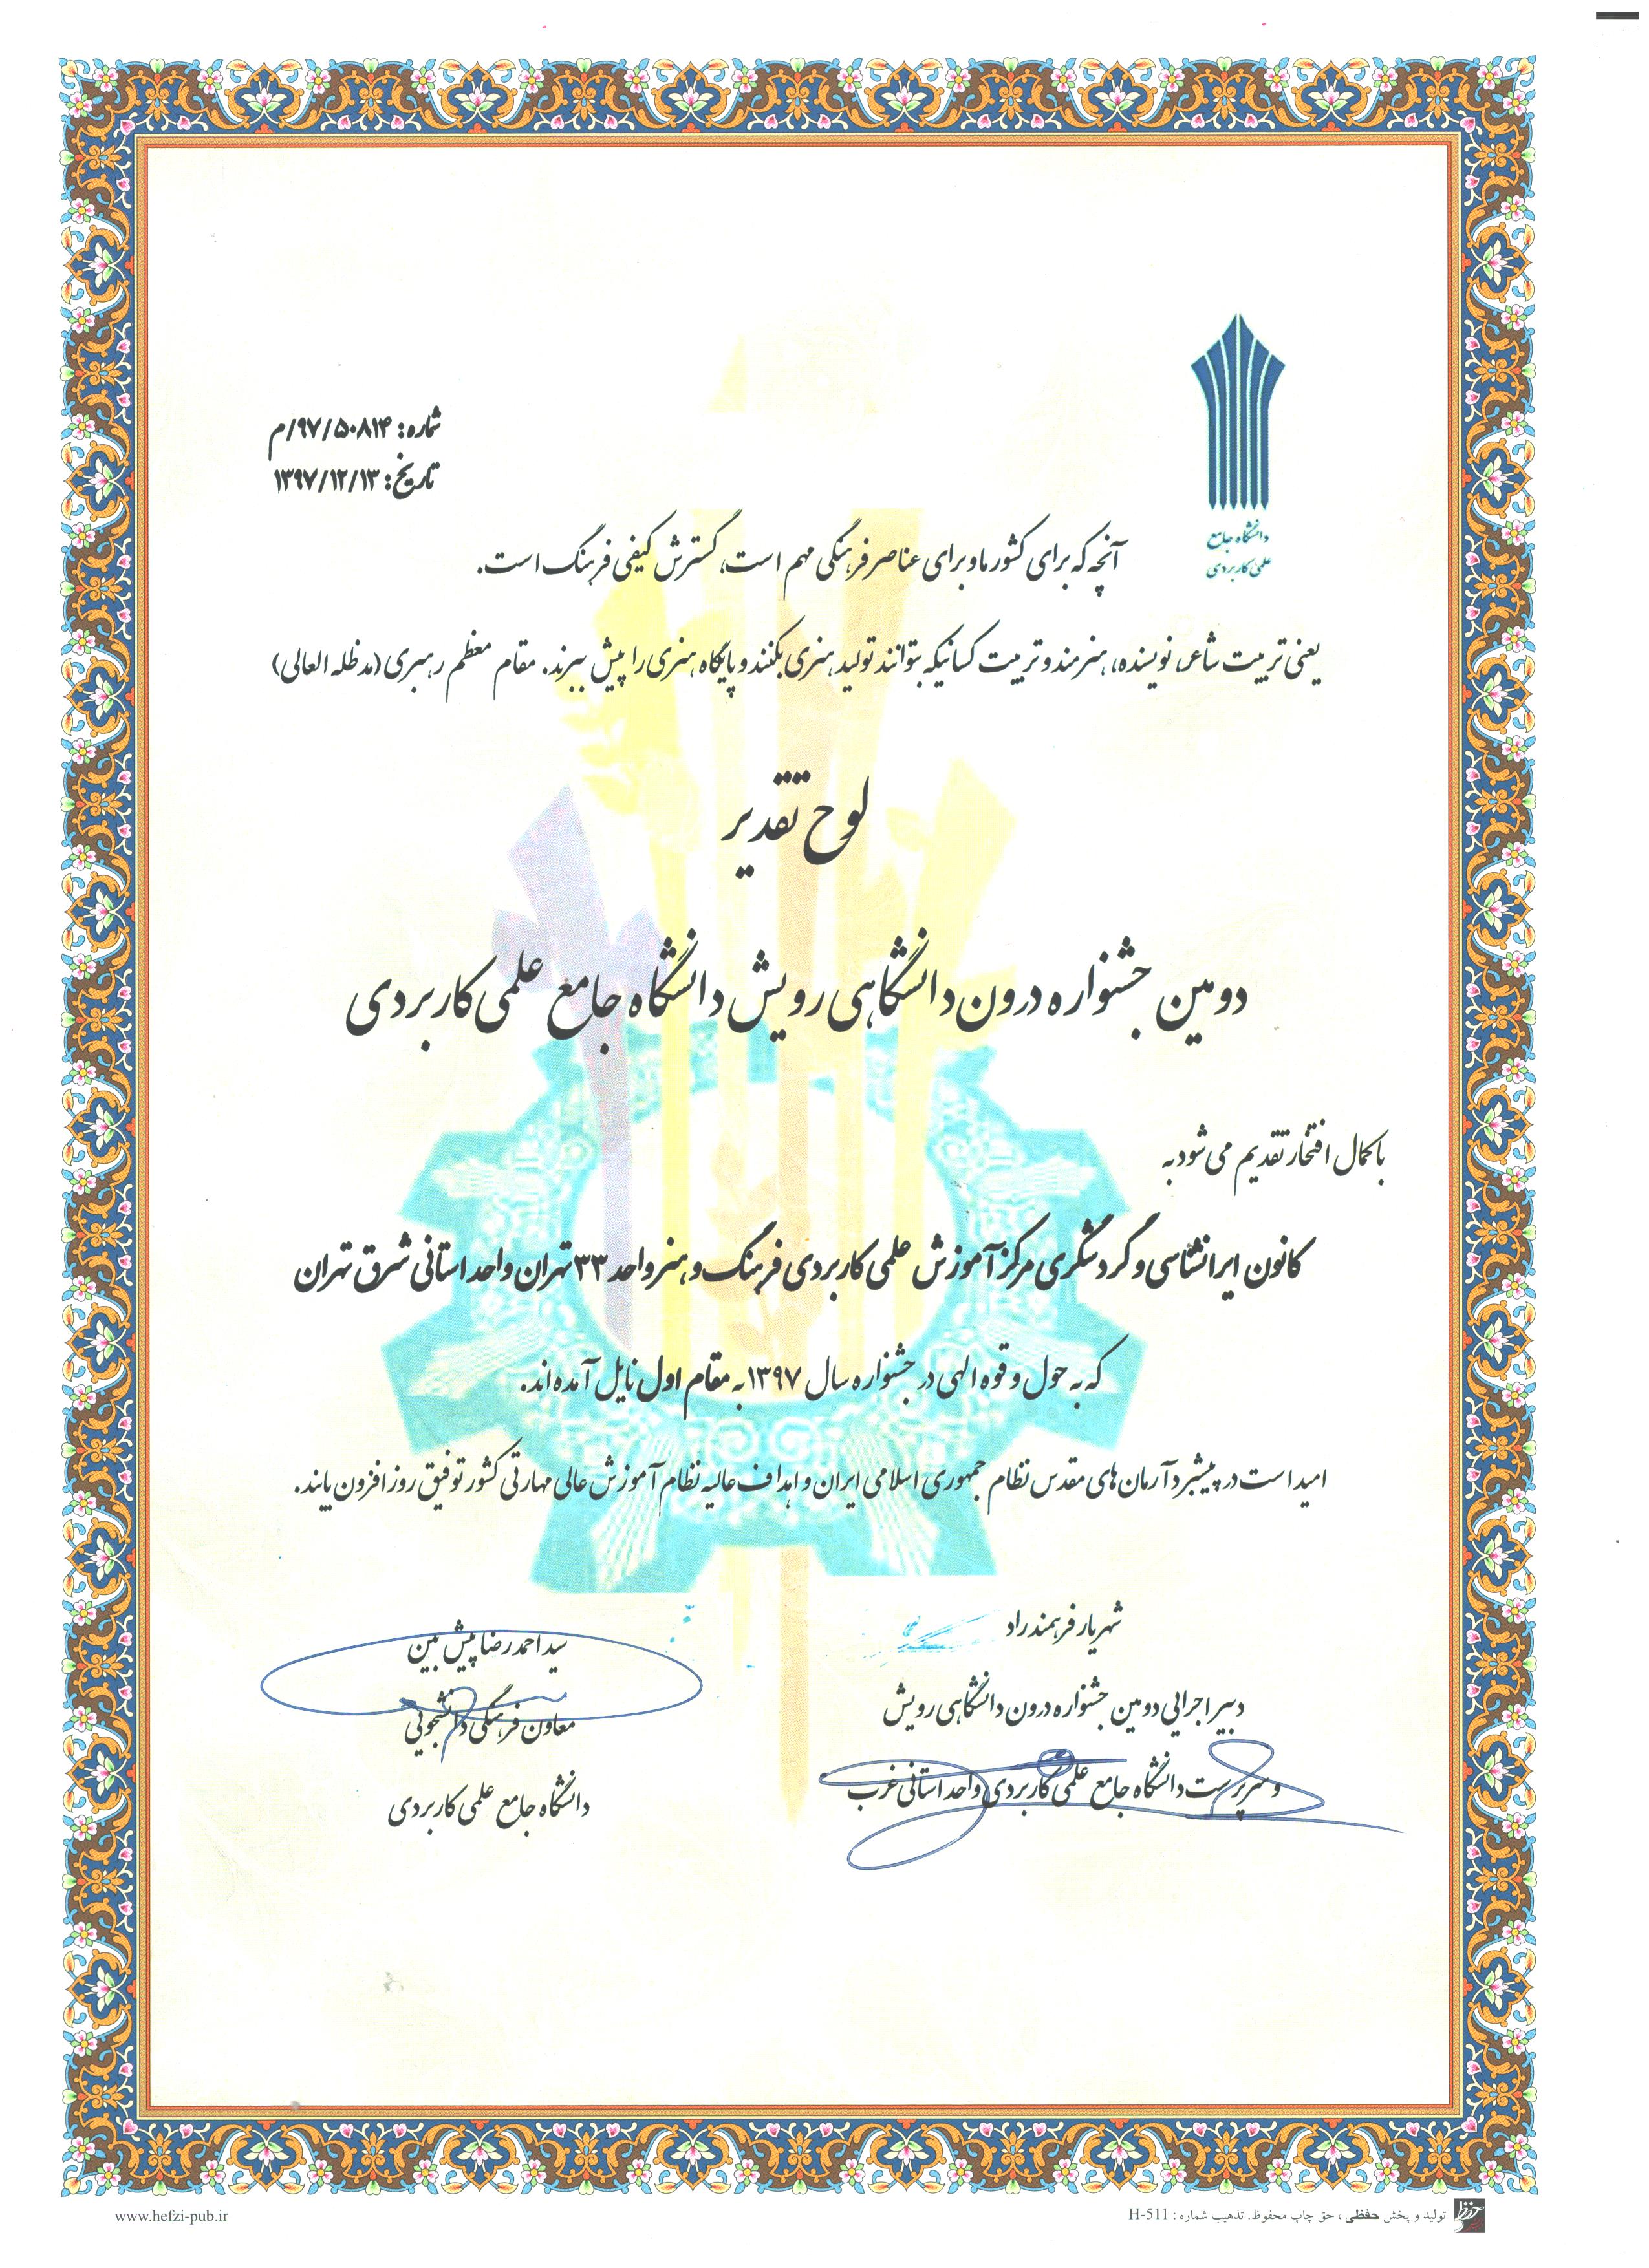 شماره: ۹۷/۵۰۸۱۴/م
تاریخ: ۱۳۹۷/۱۲/۱۳
دانشگاه جامع
علمی کاربردی
آنچه که برای کشور ما و برای عناصر فرهنگی مهم است، گسترش کیفی فرهنگ است.
یعنی تربیت شاعر، نویسنده، هنرمند و تربیت کسانیکه بتوانند تولید هنری بکنند و پایگاه هنری را پیش ببرند. مقام معظم رهبری (مد ظله العالی)
لوح تقدیر
دومین جشنواره درون دانشگاهی رویش دانشگاه جامع علمی کاربردی
با کمال افتخار تقدیم می شود به
کانون ایرانشناسی و گردشگری مرکز آموزش علمی کاربردی فرهنگ و هنر واحد ۳۳ تهران واحد استانی شرق تهران
که به حول و قوه الهی در جشنواره سال ۱۳۹۷ به مقام اول نایل آمده اند.
امید است در پیشبرد آرمان های مقدس نظام جمهوری اسلامی ایران و اهداف عالیه نظام آموزش عالی مهارتی کشور توفیق روز افزون یابند.
شهریار فرهمند راد
دبیر اجرایی دومین جشنواره درون دانشگاهی رویش
و سرپرست دانشگاه جامع علمی کاربردی واحد استانی غرب
سید احمد رضا پیش بین
معاون فرهنگی دانشجویی
دانشگاه جامع علمی کاربردی
تولید و پخش حفظی ، حق چاپ محفوظ. تذهیب شماره : H-511
www.hefzi-pub.ir